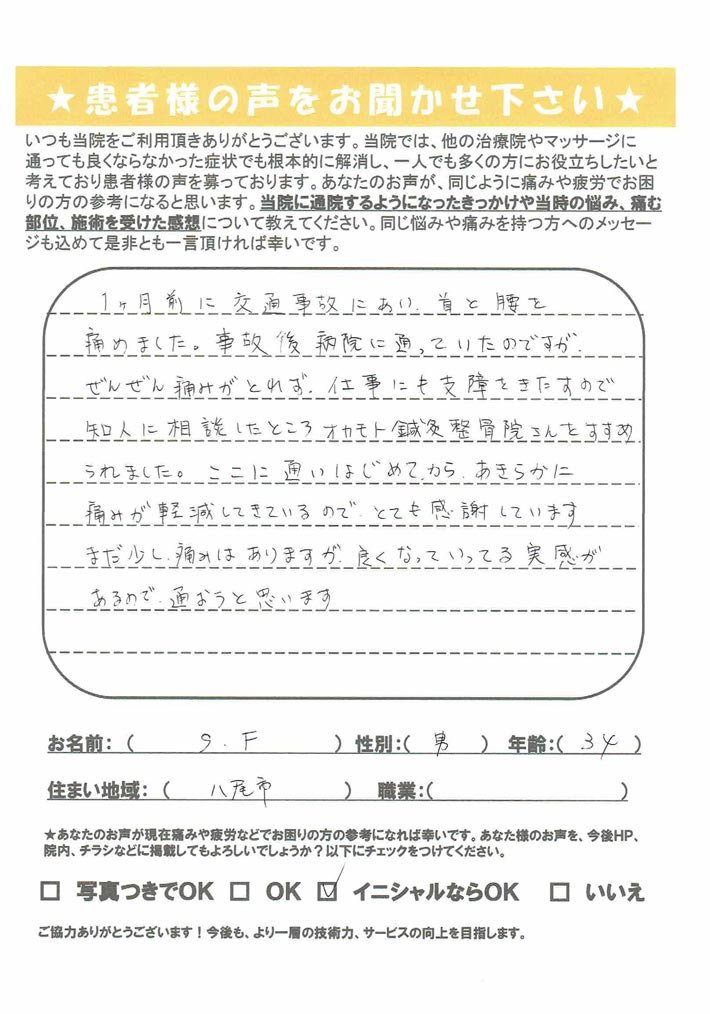 ★患者様の声をお聞かせ下さい★
いつも当院をご利用頂きありがとうございます。当院では、他の治療院やマッサージに
通っても良くならなかった症状でも根本的に解消し、一人でも多くの方にお役立ちしたいと
考えており患者様の声を募っております。あなたのお声が、同じように痛みや疲労でお困
りの方の参考になると思います。当院に通院するようになったきっかけや当時の悩み、痛む
部位、施術を受けた感想について教えてください。同じ悩みや痛みを持つ方へのメッセー
ジも込めて是非とも一言頂ければ幸いです。
1ヶ月前に交通事故にあい、首と腰を
痛めました。事故後病院に通っていたのですが、
ぜんぜん痛みがとれず、仕事にも支障をきたすので
知人に相談したところオカモト鍼灸整骨院さんをすすめ
られました。ここに通いはじめてから、あきらかに
痛みが軽減してきているので、とても感謝しています
まだ少し痛みはありますが、良くなっていってる実感が
あるので、通おうと思います
お名前:( S.F ) 性別:( 男 ) 年齢:( 34 )
住まい地域:( 八尾市 ) 職業:( )
★あなたのお声が現在痛みや疲労などでお困りの方の参考になれば幸いです。あなた様のお声を、今後HP、
院内、チラシなどに掲載してもよろしいでしょうか?以下にチェックをつけてください。
□ 写真つきでOK □ OK ☑ イニシャルならOK □ いいえ
ご協力ありがとうございます!今後も、より一層の技術力、サービスの向上を目指します。